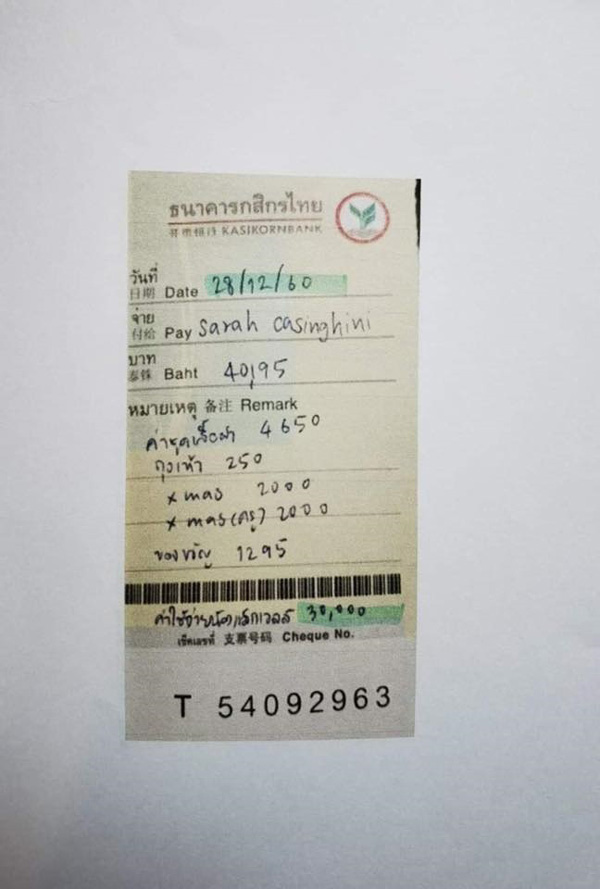 ธนาคารกสิกรไทย
开泰银行 KASIKORNBANK
วันที่
日期 Date 28/12/60
จ่าย
付给 Pay Sarah Casinghini
บาท
泰铢 Baht 40,195
หมายเหตุ 备注 Remark
ค่าชุดเสื้อผ้า 4650
ถุงเท้า 250
xmas 2000
xmas (ครู) 2000
ของขวัญ 1295
ค่าใช้จ่าย 30,000
เช็คเลขที่ 支票号码 Cheque No.
T 54092963